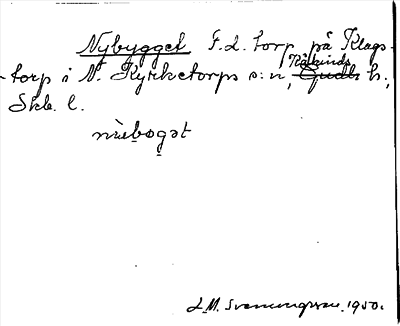 Nybygget F.d. torp på Klags-
torp i N. Kyrketorps s:n, Kåkinds h.,
Skb. l.
nỳ̀bogət
L.M. Svennungsson. 1950.